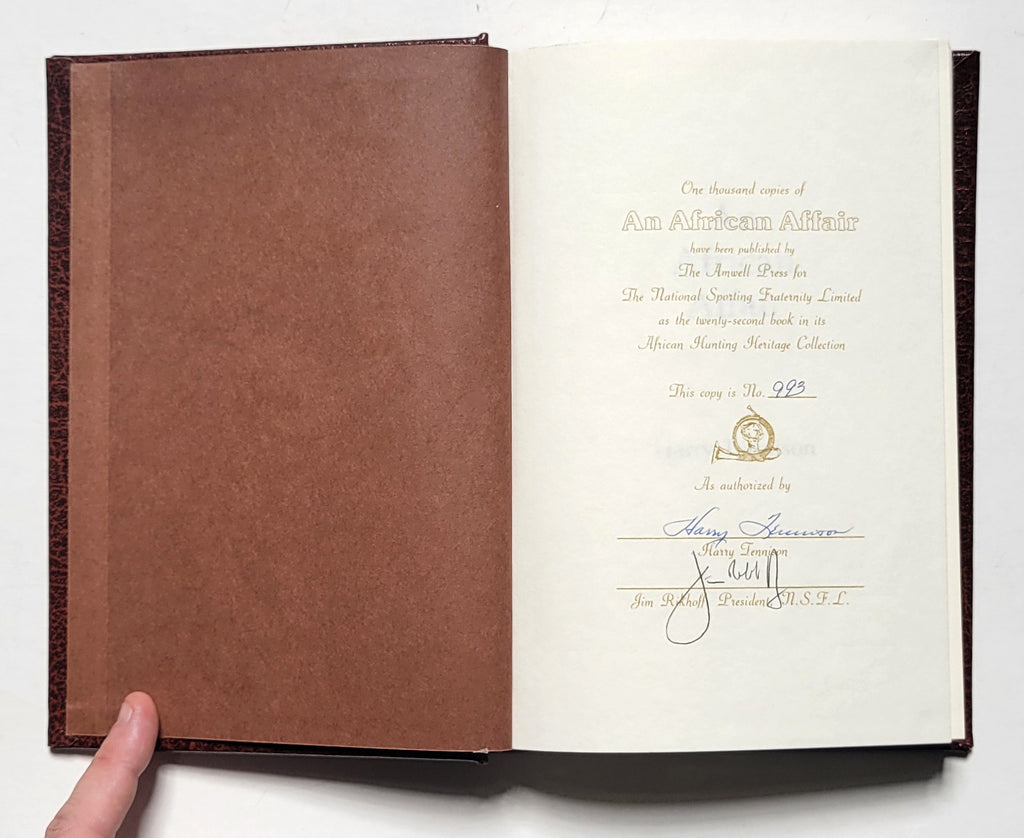 One thousand copies of
An African Affair
have been published by
The Amwell Press for
The National Sporting Fraternity Limited
as the twenty-second book in its
African Hunting Heritage Collection
This copy is No. 993
As authorized by
Harry Tennison
Harry Tennison
Jim Rikhoff President N.S.F.L.